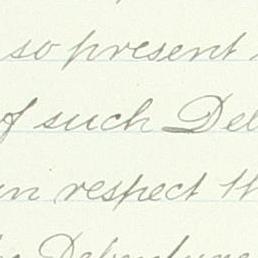 so present
of such Deb
in respect th
Debenture